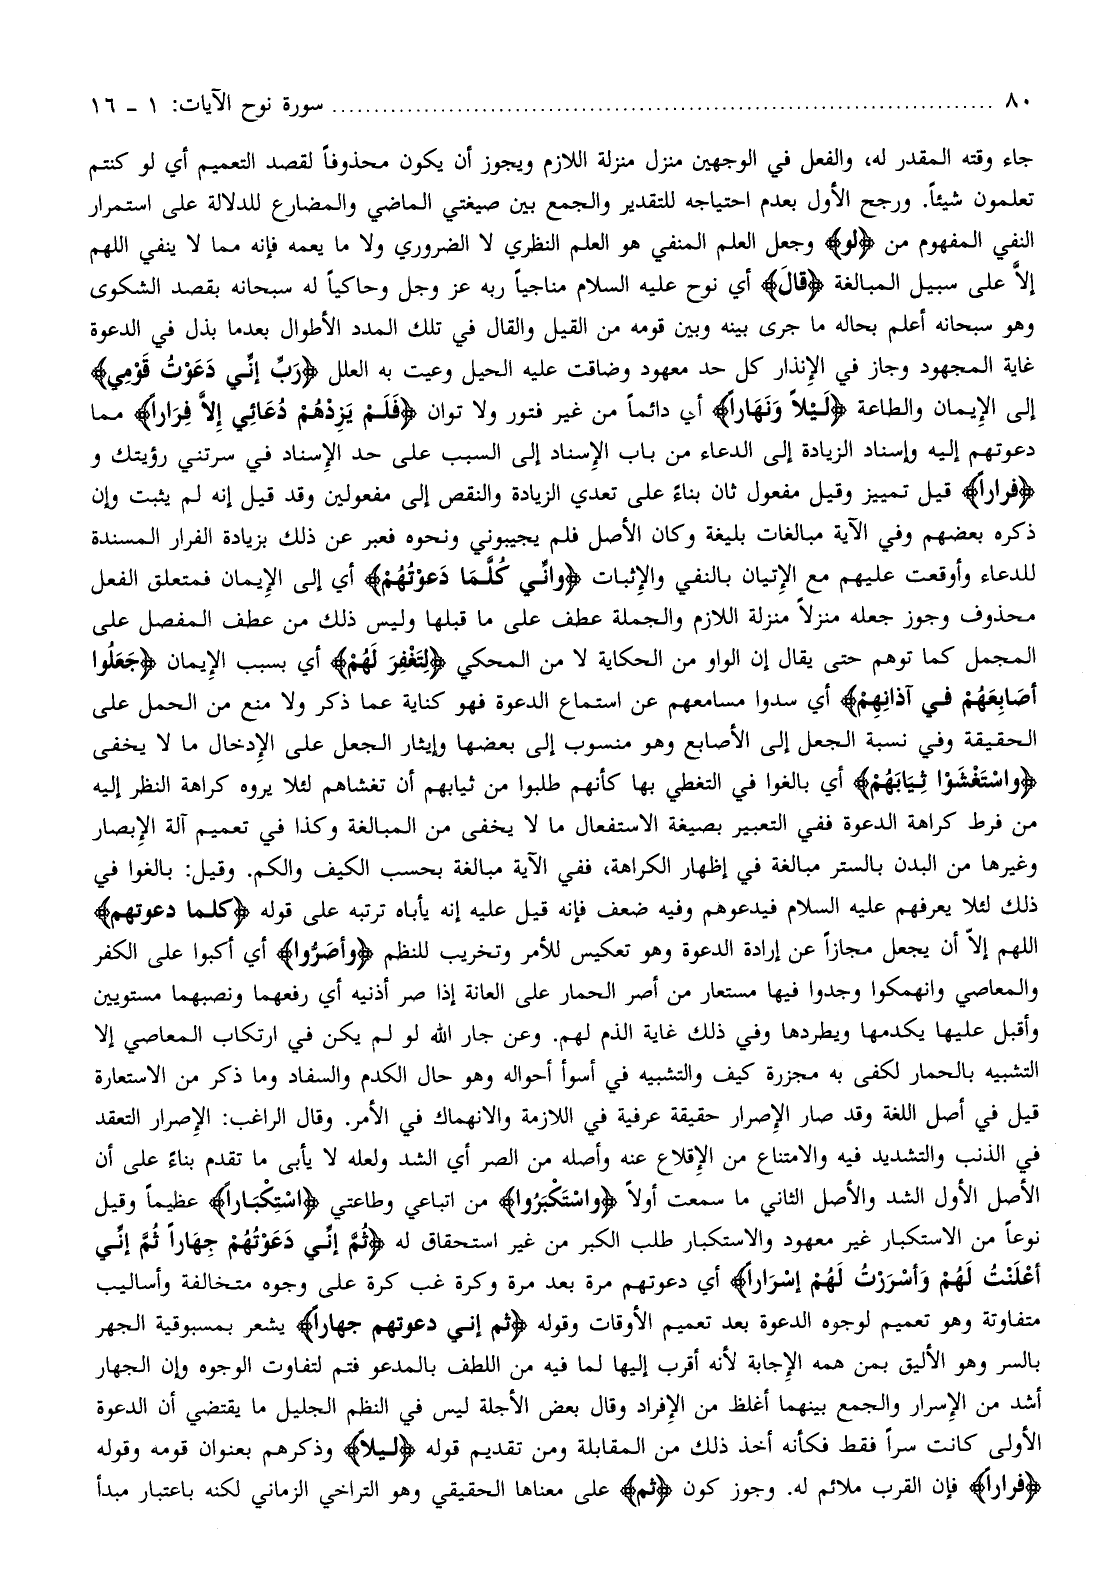 ٨٠ ........................................................................ سورة نوح الآيات: ١ - ١٦
جاء وقته المقدر له، والفعل في الوجهين منزل منزلة اللازم ويجوز أن يكون محذوفاً لقصد التعميم أي لو كنتم
تعلمون شيئاً. ورجح الأول بعدم احتياجه للتقدير والجمع بين صيغتي الماضي والمضارع للدلالة على استمرار
النفي المفهوم من ﴿لو﴾ وجعل العلم المنفي هو العلم النظري لا الضروري ولا ما يعمه فإنه مما لا ينفي اللهم
إلاَّ على سبيل المبالغة ﴿قالَ﴾ أي نوح عليه السلام مناجياً ربه عز وجل وحاكياً له سبحانه بقصد الشكوى
وهو سبحانه أعلم بحاله ما جرى بينه وبين قومه من القيل والقال في تلك المدد الأطوال بعدما بذل في الدعوة
غاية المجهود وجاز في الإنذار كل حد معهود وضاقت عليه الحيل وعيت به العلل ﴿رَبِّ إنِّي دَعَوْتُ قَوْمِي﴾
إلى الإيمان والطاعة ﴿لَيْلاً وَنَهَاراً﴾ أي دائماً من غير فتور ولا توان ﴿فَلَمْ يَزِدْهُمْ دُعَائِي إلاَّ فِرَاراً﴾ مما
دعوتهم إليه وإسناد الزيادة إلى الدعاء من باب الإسناد إلى السبب على حد الإسناد في سرتني رؤيتك و
﴿فراراً﴾ قيل تمييز وقيل مفعول ثان بناءً على تعدي الزيادة والنقص إلى مفعولين وقد قيل إنه لم يثبت وإن
ذكره بعضهم وفي الآية مبالغات بليغة وكان الأصل فلم يجيبوني ونحوه فعبر عن ذلك بزيادة الفرار المسندة
للدعاء وأوقعت عليهم مع الإتيان بالنفي والإثبات ﴿وانِّي كُلَّمَا دَعَوْتُهُمْ﴾ أي إلى الإيمان فمتعلق الفعل
محذوف وجوز جعله منزلاً منزلة اللازم والجملة عطف على ما قبلها وليس ذلك من عطف المفصل على
المجمل كما توهم حتى يقال إن الواو من الحكاية لا من المحكي ﴿لِتَغْفِرَ لَهُمْ﴾ أي بسبب الإيمان ﴿جَعَلُوا
أصَابِعَهُمْ في آذانِهِمْ﴾ أي سدوا مسامعهم عن استماع الدعوة فهو كناية عما ذكر ولا منع من الحمل على
الحقيقة وفي نسبة الجعل إلى الأصابع وهو منسوب إلى بعضها وإيثار الجعل على الإدخال ما لا يخفى
﴿واسْتَغْشَوْا ثِيَابَهُمْ﴾ أي بالغوا في التغطي بها كأنهم طلبوا من ثيابهم أن تغشاهم لئلا يروه كراهة النظر إليه
من فرط كراهة الدعوة ففي التعبير بصيغة الاستفعال ما لا يخفى من المبالغة وكذا في تعميم آلة الإبصار
وغيرها من البدن بالستر مبالغة في إظهار الكراهة، ففي الآية مبالغة بحسب الكيف والكم. وقيل: بالغوا في
ذلك لئلا يعرفهم عليه السلام فيدعوهم وفيه ضعف فإنه قيل عليه إنه يأباه ترتبه على قوله ﴿كلما دعوتهم﴾
اللهم إلاّ أن يجعل مجازاً عن إرادة الدعوة وهو تعكيس للأمر وتخريب للنظم ﴿وأصَرُّوا﴾ أي أكبوا على الكفر
والمعاصي وانهمكوا وجدوا فيها مستعار من أصر الحمار على العانة إذا صر أذنيه أي رفعهما ونصبهما مستويين
وأقبل عليها يكدمها ويطردها وفي ذلك غاية الذم لهم. وعن جار الله لو لم يكن في ارتكاب المعاصي إلا
التشبيه بالحمار لكفى به مجزرة كيف والتشبيه في أسوأ أحواله وهو حال الكدم والسفاد وما ذكر من الاستعارة
قيل في أصل اللغة وقد صار الإصرار حقيقة عرفية في اللازمة والانهماك في الأمر. وقال الراغب: الإصرار التعقد
في الذنب والتشديد فيه والامتناع من الإقلاع عنه وأصله من الصر أي الشد ولعله لا يأبى ما تقدم بناءً على أن
الأصل الأول الشد والأصل الثاني ما سمعت أولاً ﴿واسْتَكْبَرُوا﴾ من اتباعي وطاعتي ﴿اسْتِكْبَاراً﴾ عظيماً وقيل
نوعاً من الاستكبار غير معهود والاستكبار طلب الكبر من غير استحقاق له ﴿ثُمَّ إنِّي دَعَوْتُهُمْ جِهَاراً ثُمَّ إنِّي
أعْلَنْتُ لَهُمْ وَأسْرَرْتُ لَهُمْ إسْرَاراً﴾ أي دعوتهم مرة بعد مرة وكرة غب كرة على وجوه متخالفة وأساليب
متفاوتة وهو تعميم لوجوه الدعوة بعد تعميم الأوقات وقوله ﴿ثم إني دعوتهم جهاراً﴾ يشعر بمسبوقية الجهر
بالسر وهو الأليق بمن همه الإجابة لأنه أقرب إليها لما فيه من اللطف بالمدعو فتم لتفاوت الوجوه وإن الجهار
أشد من الإسرار والجمع بينهما أغلظ من الإفراد وقال بعض الأجلة ليس في النظم الجليل ما يقتضي أن الدعوة
الأولى كانت سراً فقط فكأنه أخذ ذلك من المقابلة ومن تقديم قوله ﴿ليلاً﴾ وذكرهم بعنوان قومه وقوله
﴿فراراً﴾ فإن القرب ملائم له. وجوز كون ﴿ثم﴾ على معناها الحقيقي وهو التراخي الزماني لكنه باعتبار مبدأ